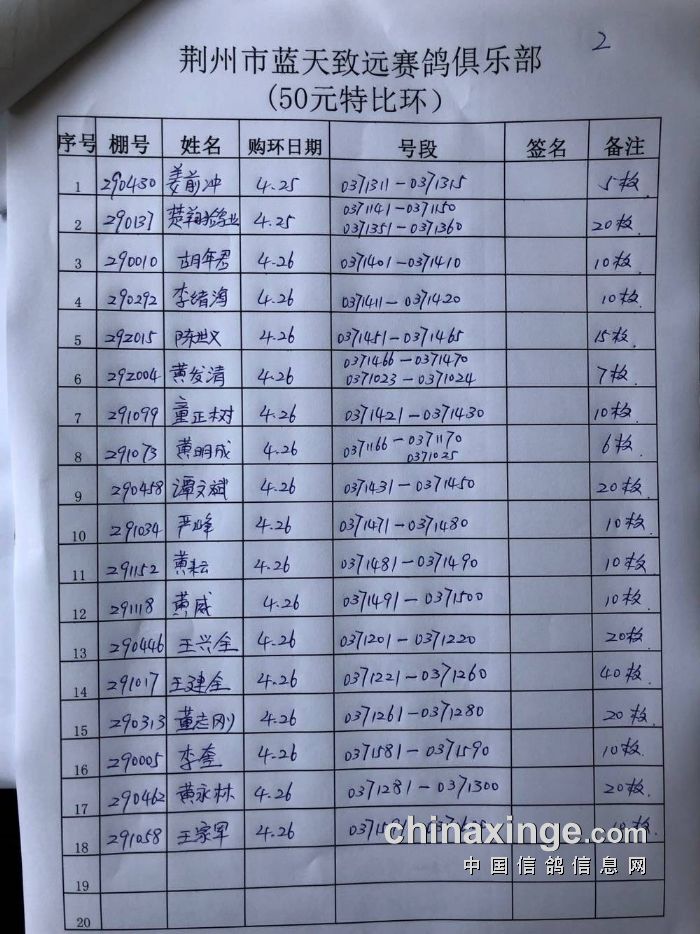 2
荆州市蓝天致远赛鸽俱乐部
(50元特比环)
序号 棚号 姓名 购环日期 号段 签名 备注
1 290430 姜前冲 4.25 0371311-0371315 5枚
2 290137 楚翔鸽业 4.25 0371141-0371150 20枚
0371351-0371360
3 290010 胡年君 4.26 0371401-0371410 10枚
4 290292 李绪海 4.26 0371411-0371420 10枚
5 292015 陈世义 4.26 0371451-0371465 15枚
6 292004 黄发清 4.26 0371466-0371470 7枚
0371023-0371024
7 291099 童正树 4.26 0371421-0371430 10枚
8 291073 黄明成 4.26 0371166-0371170 6枚
0371025
9 290458 谭文斌 4.26 0371431-0371450 20枚
10 291034 严峰 4.26 0371471-0371480 10枚
11 291152 黄耘 4.26 0371481-0371490 10枚
12 291118 黄威 4.26 0371491-0371500 10枚
13 290446 王兴全 4.26 0371201-0371220 20枚
14 291017 王建全 4.26 0371221-0371260 40枚
15 290313 董志刚 4.26 0371261-0371280 20枚
16 290005 李奎 4.26 0371581-0371590 10枚
17 290462 黄永林 4.26 0371281-0371300 20枚
18 291058 王家军 4.26 10枚
19
20
chinaxinge.com
中国信鸽信息网